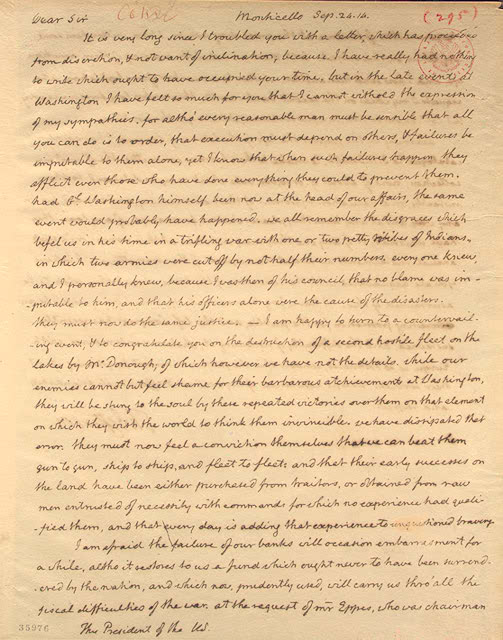 Dear Sir
Monticello Sep. 24. 14.
(295)
It is very long since I troubled you with a letter, which has proceeded
from discretion, & not want of inclination, because I have really had nothing
to write which ought to have occupied your time. but in the late events at
Washington I have felt so much for you that I cannot withold the expression
of my sympathies. for altho' every reasonable man must be sensible that all
you can do is to order, that execution must depend on others, & failures be
imputable to them alone, yet I know that when such failures happen they
afflict even those who have done everything they could to prevent them.
had Genl. Washington himself been now at the head of our affairs, the same
event would probably have happened. we all remember the disgraces which
befel us in his time in a trifling war with one or two petty tribes of Indians,
in which two armies were cut off by not half their numbers. every one knew
and I personally knew, because I was then of his council, that no blame was im-
-putable to him, and that his officers alone were the cause of the disasters.
they must now do the same justice. — I am happy to turn to a countervail-
-ing event, & to congratulate you on the destruction of a second hostile fleet on the
lakes by Mc.Donough; of which however we have not the details. while our
enemies cannot but feel shame for their barbarous atchievements at Washington,
they will be stung to the soul by these repeated victories over them on that element
on which they wish the world to think them invincible. we have dissipated that
error. they must now feel a conviction themselves that we can beat them
gun to gun, ship to ship, and fleet to fleet: and that their early successes on
the land have been either purchased from traitors, or obtained from raw
men entrusted of necessity with commands for which no experience had quali-
-fied them, and that every day is adding that experience to unquestioned bravery.
I am afraid the failure of our banks will occasion embarrasment for
a while, altho it restores to us a fund which ought never to have been surrend-
-ered by the nation, and which now, prudently used, will carry us thro' all the
fiscal difficulties of the war. at the request of mr Eppes, who was chairman
The President of the US.
35976